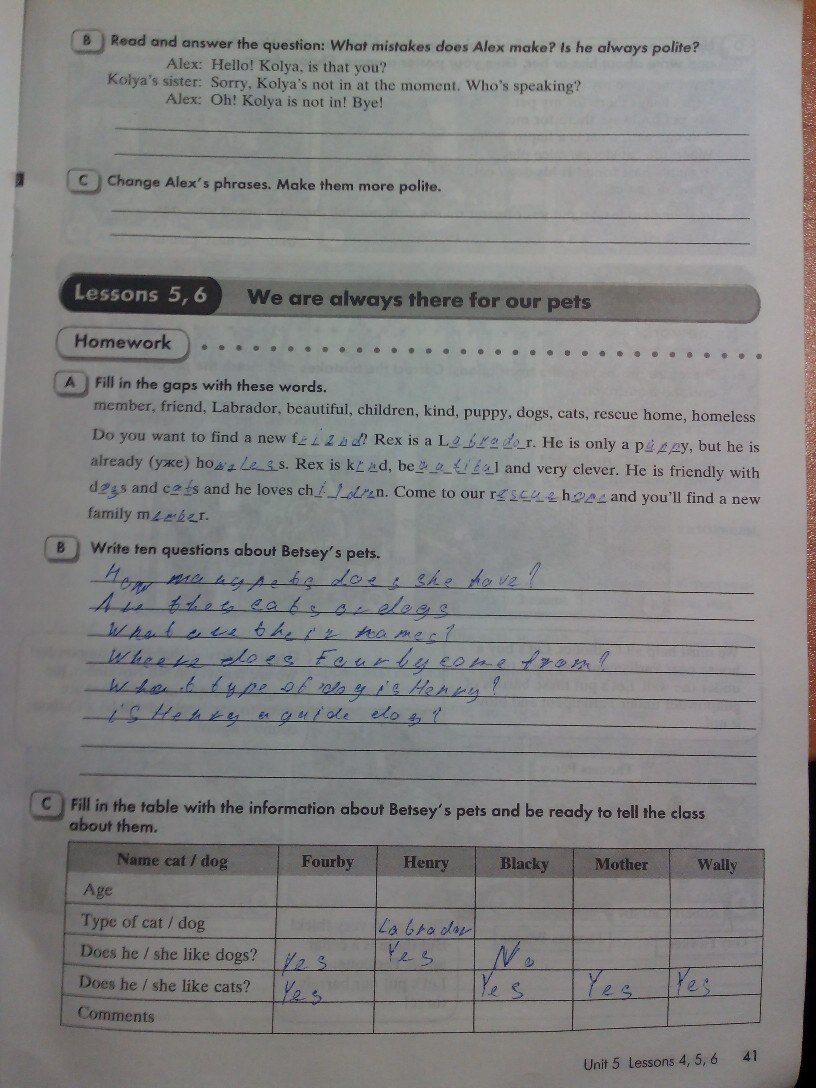 B Read and answer the question: What mistakes does Alex make? Is he always polite?
Alex: Hello! Kolya, is that you?
Kolya's sister: Sorry, Kolya's not in at the moment. Who's speaking?
Alex: Oh! Kolya is not in! Bye!
C Change Alex's phrases. Make them more polite.
Lessons 5, 6 We are always there for our pets
Homework
A Fill in the gaps with these words.
member, friend, Labrador, beautiful, children, kind, puppy, dogs, cats, rescue home, homeless
Do you want to find a new friend? Rex is a Labrador. He is only a puppy, but he is
already (уже) homeless. Rex is kind, beautiful and very clever. He is friendly with
dogs and cats and he loves children. Come to our rescue home and you'll find a new
family member.
B Write ten questions about Betsey's pets.
How many pets does she have?
Are they cats or dogs
What are their names?
Where does Fourby come from?
What type of dog is Henry?
is Henry a guide dog?
C Fill in the table with the information about Betsey's pets and be ready to tell the class
about them.
Name cat / dog Fourby Henry Blacky Mother Wally
Age
Type of cat / dog Labrador
Does he / she like dogs? Yes Yes No
Does he / she like cats? Yes Yes Yes Yes
Comments
Unit 5 Lessons 4, 5, 6 41